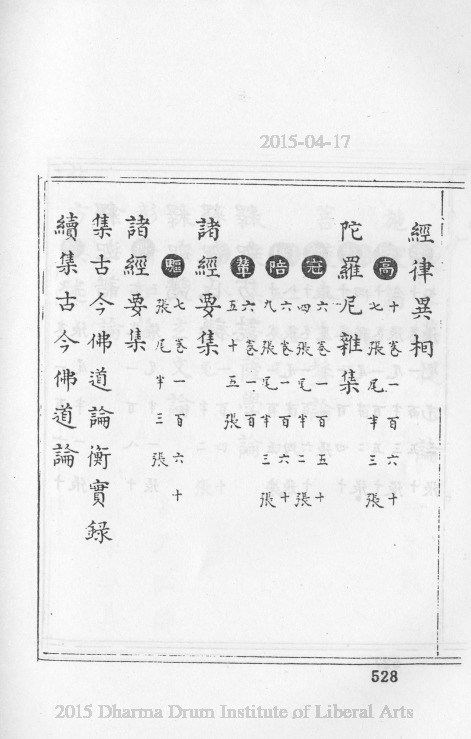 2015-04-17
經律異相
高
十卷一百六十
七張尾半三張
陀羅尼雜集
冠
六卷一百五十
四張尾半二張
陪
六卷一百六十
九張尾半二張
輦
六卷一百
五十五張
諸經要集
驅
七卷一百六十
張尾半三張
諸經要集
集古今佛道論衡實録
續集古今佛道論
528
2015 Dharma Drum Institute of Liberal Arts